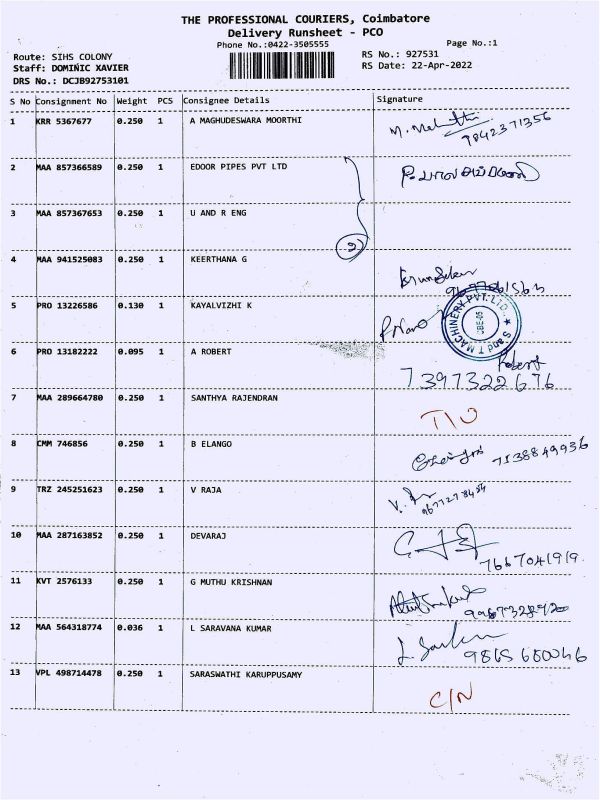 THE PROFESSIONAL COURIERS, Coimbatore
Delivery Runsheet - PCO
Phone No.:0422-3505555
Page No.:1
Route: SIHS COLONY
Staff: DOMINIC XAVIER
DRS No.: DCJB92753101
RS No.: 927531
RS Date: 22-Apr-2022
S No Consignment No Weight PCS Consignee Details Signature
1 KRR 5367677 0.250 1 A MAGHUDESWARA MOORTHI
9842371356
2 MAA 857366589 0.250 1 EDOOR PIPES PVT LTD
3 MAA 857367653 0.250 1 U AND R ENG
4 MAA 941525083 0.250 1 KEERTHANA G
5 PRO 13226586 0.130 1 KAYALVIZHI K
S and T MACHINERY PVT. LTD.
CBE-05
6 PRO 13182222 0.095 1 A ROBERT Robert
7397322676
7 MAA 289664780 0.250 1 SANTHYA RAJENDRAN
8 CMM 746856 0.250 1 B ELANGO 7138849936
9 TRZ 245251623 0.250 1 V RAJA
10 MAA 287163852 0.250 1 DEVARAJ
7667041919
11 KVT 2576133 0.250 1 G MUTHU KRISHNAN
12 MAA 564318774 0.036 1 L SARAVANA KUMAR
13 VPL 498714478 0.250 1 SARASWATHI KARUPPUSAMY
C/N